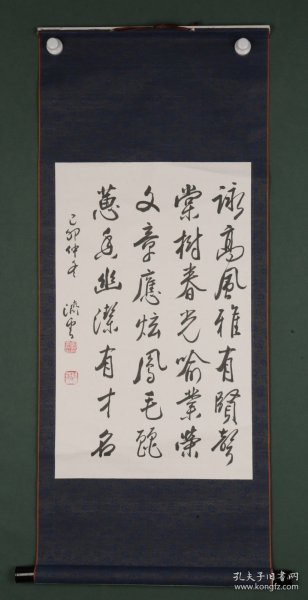 詠高風雅有賢聲
棠樹春光喻業榮
文章應炫鳳毛麗
蕙香幽潔有才名
己卯仲冬 雲
孔夫子旧书网